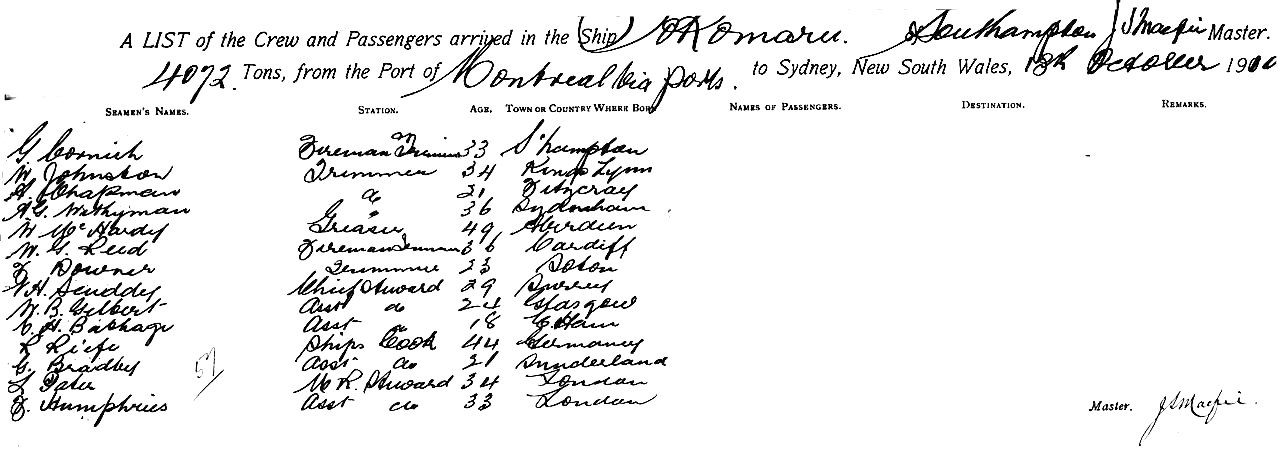 A LIST of the Crew and Passengers arrived in the (Ship) Okomaru. Southampton J S Macfie Master.
4072 Tons, from the Port of Montreal via ports. to Sydney, New South Wales, October 19
SEAMEN'S NAMES. STATION. AGE. TOWN OR COUNTRY WHERE BORN NAMES OF PASSENGERS. DESTINATION. REMARKS.
G Cornich Fireman Trimmer 33 S'hampton
W Johnston Trimmer 34 Kings Lynn
A. Chapman do 21 Fitzroy
A.G. Withyman " 36 Sydenham
W McHardy Greaser 49 Aberdeen
W. G. Reed Fireman Trimmer 36 Cardiff
F Downer Trimmer 23 Soton
Chief Steward 29 Surrey
W. B. Gilbert Asst do 24 Glasgow
C. H. Asst do 18 E. Ham
Ships Cook 44 Germany
G. Bradley Asst do 21 Sunderland
M R. Steward 34 London
F. Humphries Asst do 33 London
Master. J S Macfie.